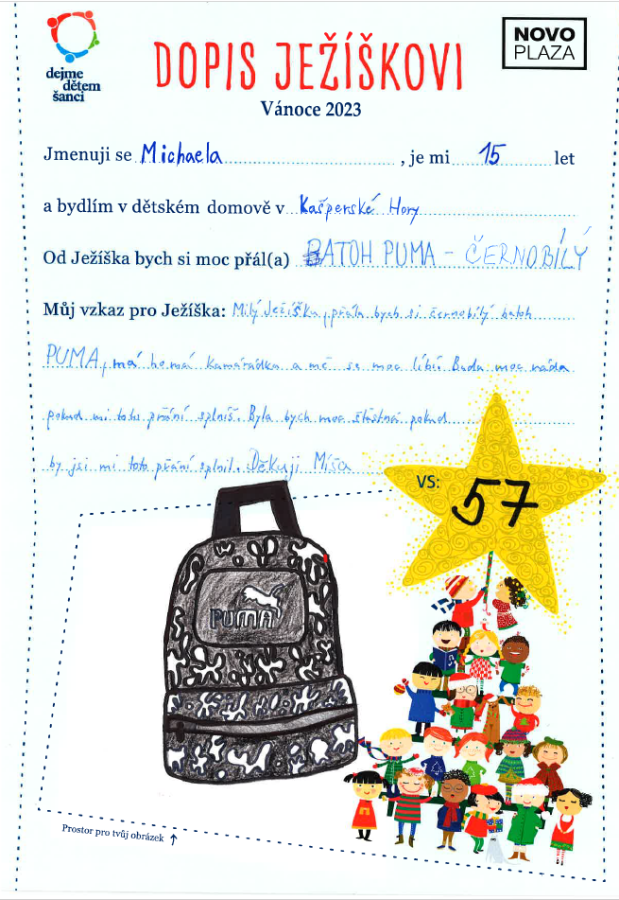 dejme
dětem
šanci
DOPIS JEŽÍŠKOVI
NOVO
PLAZA
Vánoce 2023
Jmenuji se Michaela, je mi 15 let
a bydlím v dětském domově v Kašperské Hory
Od Ježíška bych si moc přál(a) BATOH PUMA - ČERNOBÍLÝ
Můj vzkaz pro Ježíška: Milý Ježíšku, přála bych si černobílý batoh
PUMA, má ho má kamarádka a mě se moc líbí. Budu moc ráda
pokud mi toto přání splníš. Byla bych moc šťastná pokud
by jsi mi toto přání splnil. Děkuji Míša
VS: 57
PUMA
Prostor pro tvůj obrázek ↑